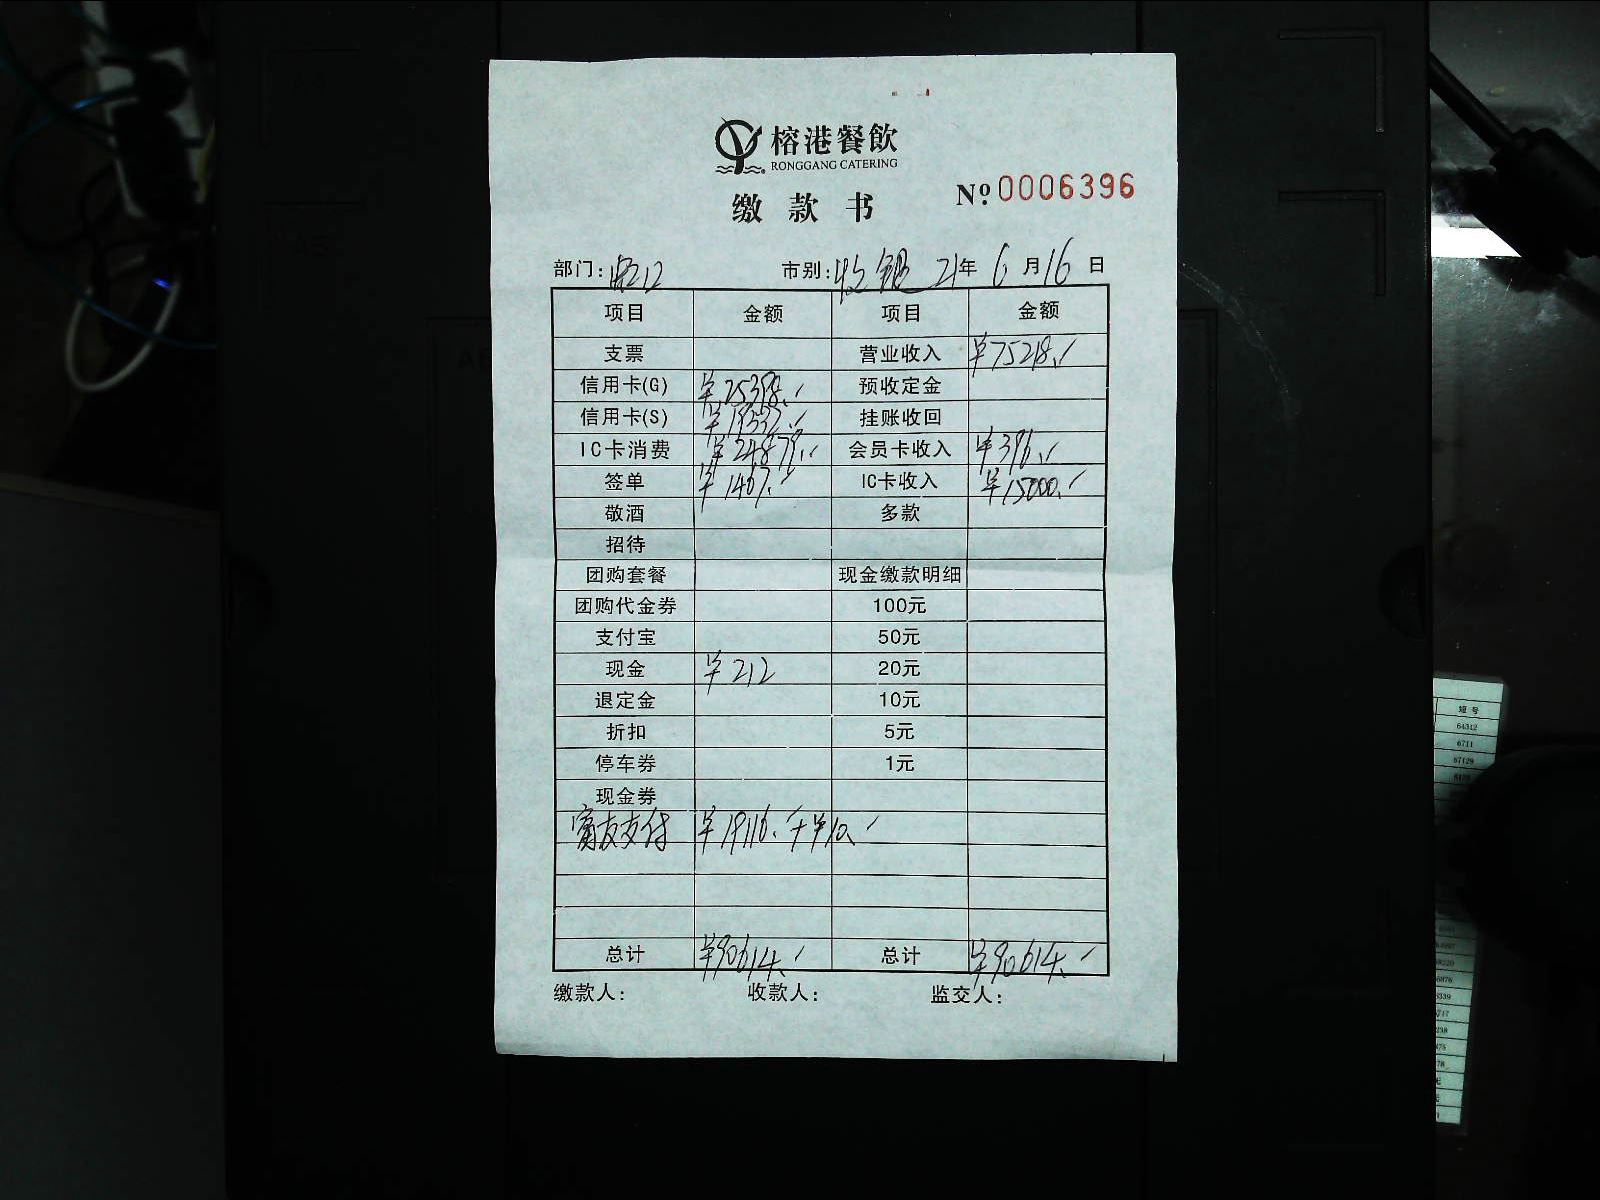 榕港餐飲
RONGGANG CATERING
缴款书
№ 0006396
部门: 市别: 收银 21年 6月16日
项目 金额 项目 金额
支票 营业收入 ¥75218.
信用卡(G) ¥25398. 预收定金
信用卡(S) ¥19533. 挂账收回
IC卡消费 ¥24878. 会员卡收入 ¥396.
签单 ¥1467. IC卡收入 ¥15000.
敬酒 多款
招待
团购套餐 现金缴款明细
团购代金券 100元
支付宝 50元
现金 ¥212 20元
退定金 10元
折扣 5元
停车券 1元
现金券
富友支付 ¥19116.+¥10.
总计 ¥90614. 总计 ¥90614.
缴款人: 收款人: 监交人:
短号
64312
6711
67129